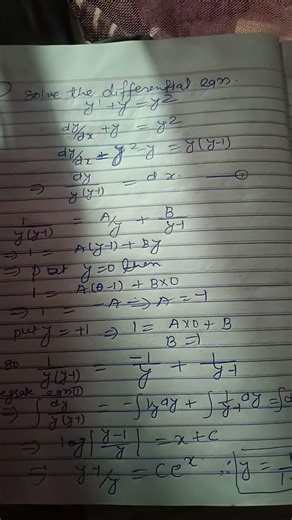 Solve the differential eqn.
y' + y = y²
dy/dx + y = y²
dy/dx = y² - y = y(y-1)
⇒ dy/y(y-1) = dx. —①
1/y(y-1) = A/y + B/y-1
⇒ 1 = A(y-1) + By
⇒ put y=0 then
1 = A(0-1) + B×0
⇒ 1 = -A ⇒ A = -1
put y = +1 ⇒ 1 = A×0 + B
B = 1
so 1/y(y-1) = -1/y + 1/y-1
eqn ①
⇒ ∫ dy/y(y-1) = -∫ 1/y dy + ∫ 1/y-1 dy = ∫
⇒ log|y-1/y| = x + c
⇒ y-1/y = Ce^x ∴ y =